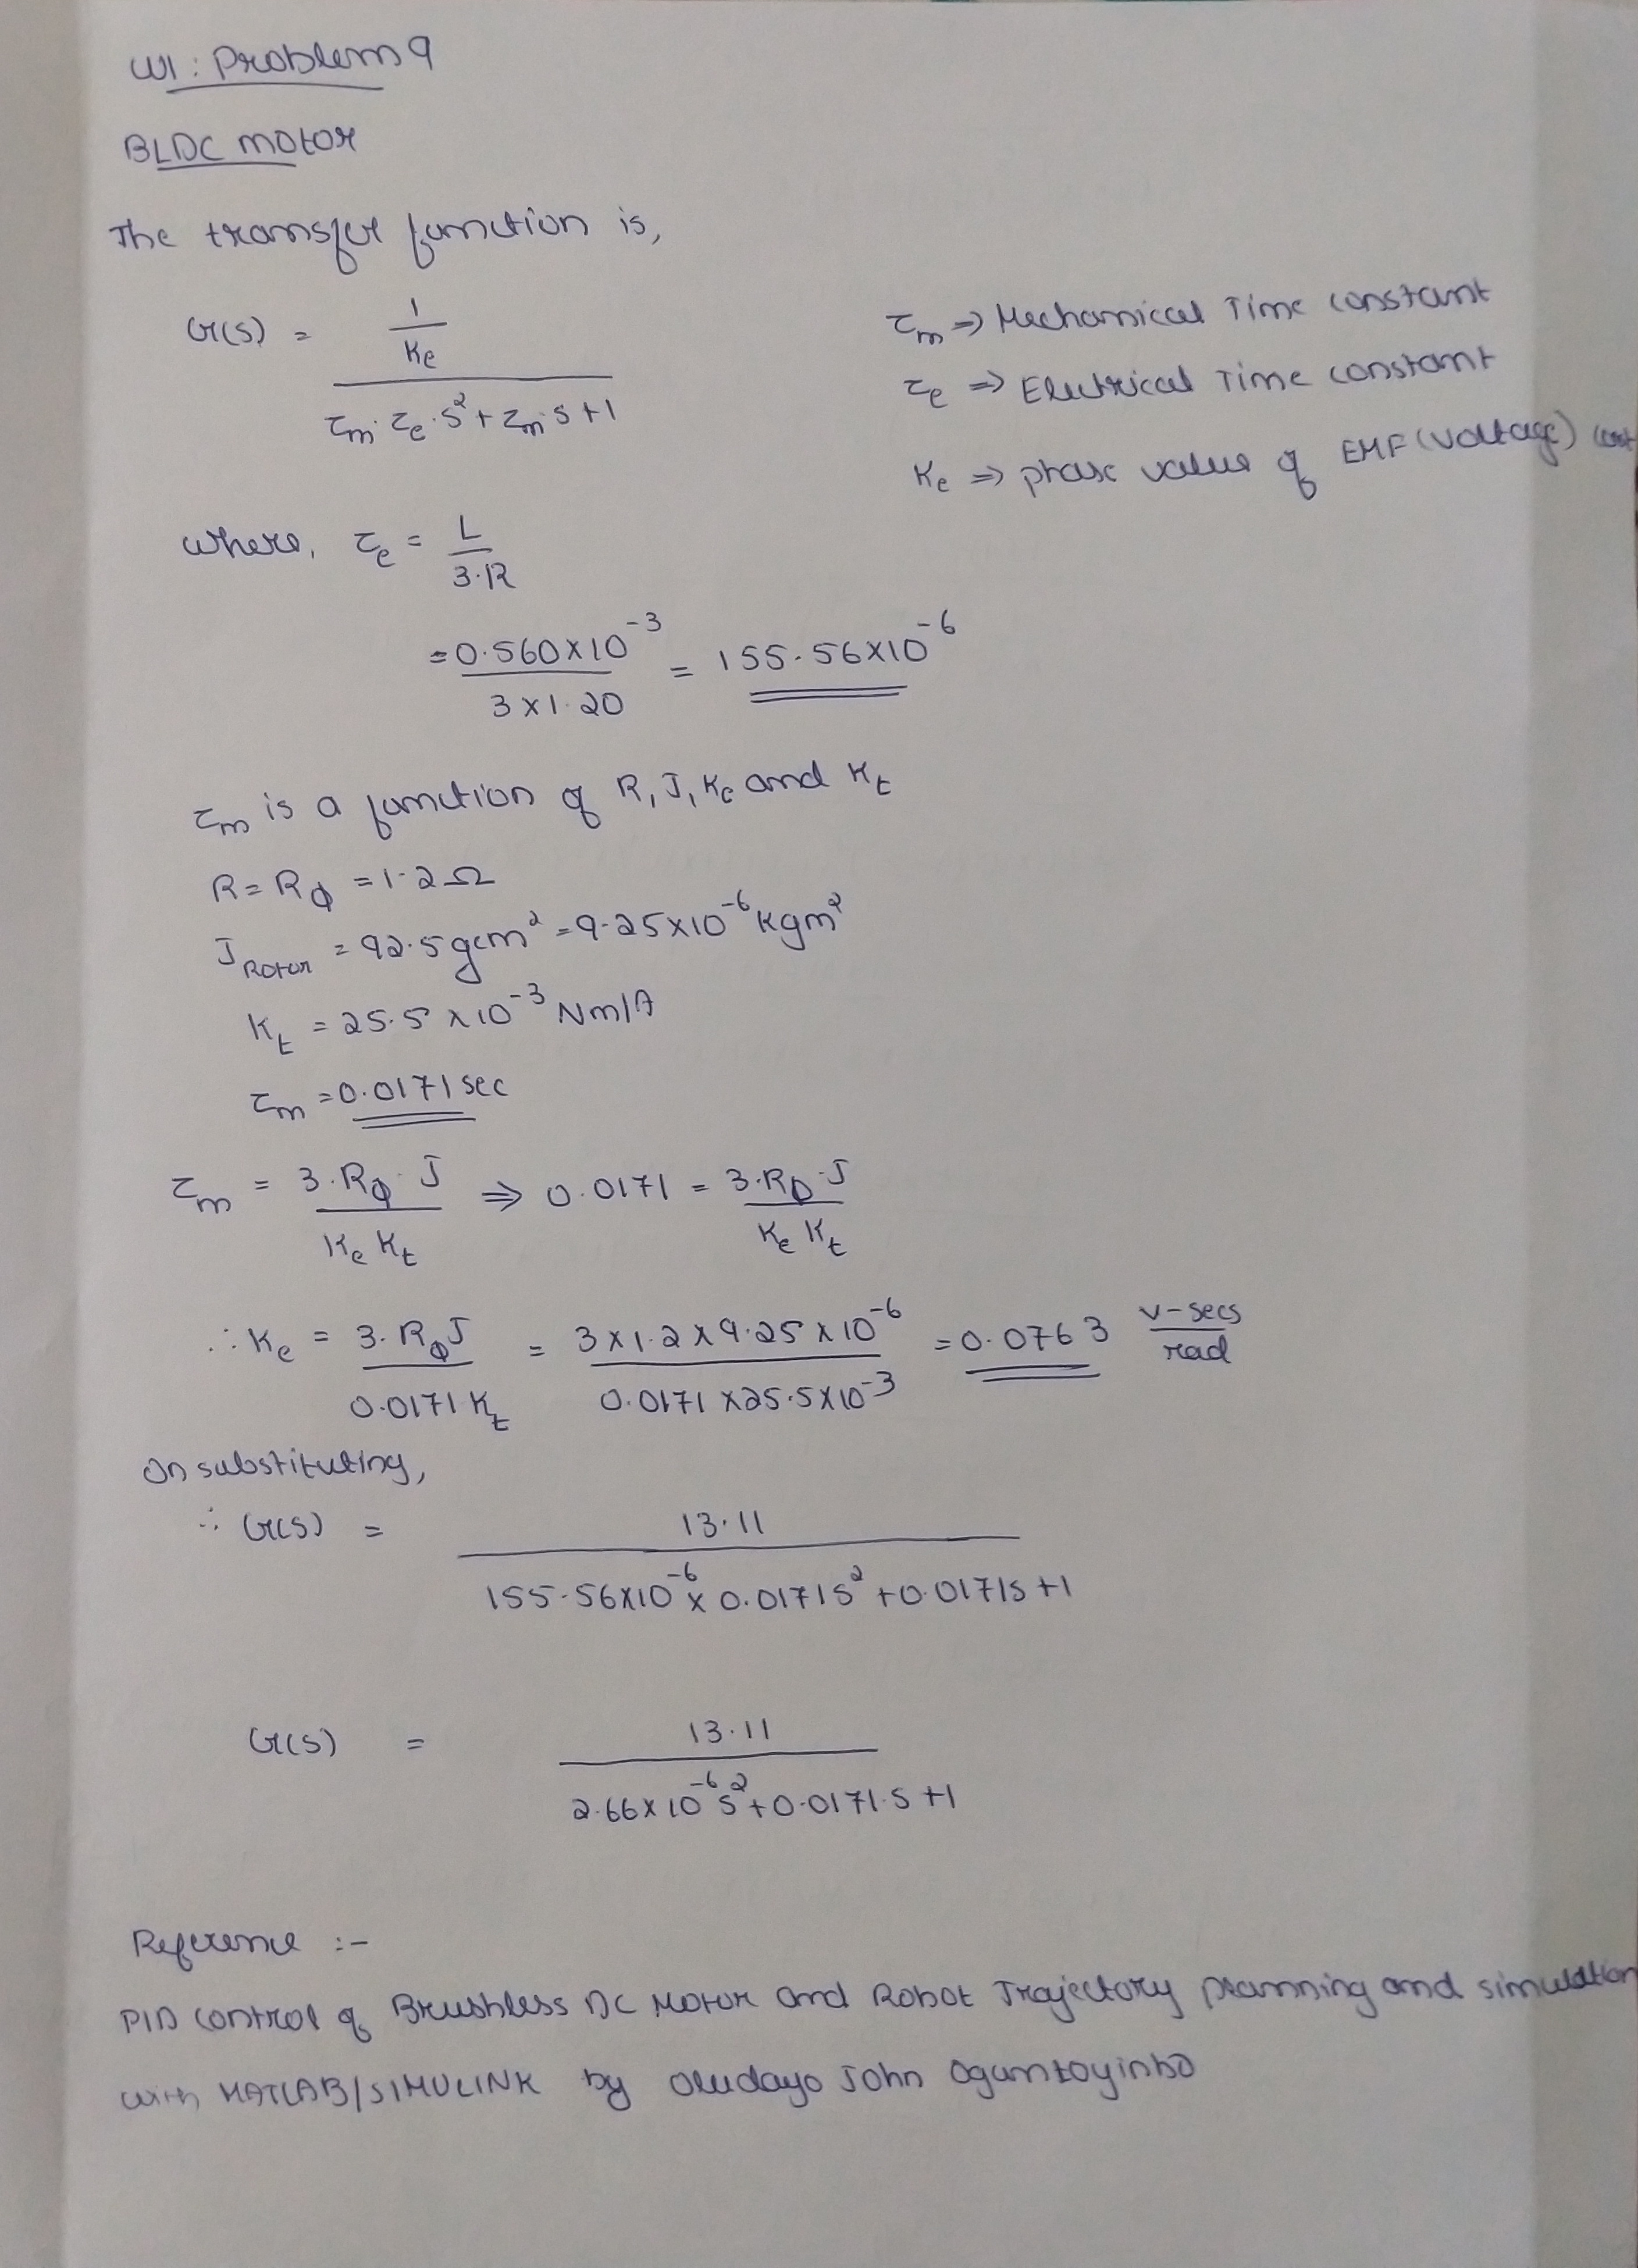 W1: Problem 9
BLDC motor
The transfer function is,
G(s) = (1/Ke) / (τm·τe·s² + τm·s + 1)
τm ⇒ Mechanical Time constant
τe ⇒ Electrical Time constant
Ke ⇒ phase value of EMF (voltage)
where, τe = L / 3·R
= 0.560×10⁻³ / 3×1.20 = 155.56×10⁻⁶
τm is a function of R, J, Ke and Kt
R = Rϕ = 1.2Ω
J Rotor = 92.5gcm² = 9.25×10⁻⁶ Kgm²
Kt = 25.5 × 10⁻³ Nm/A
τm = 0.0171 sec
τm = 3·Rϕ·J / Ke Kt ⇒ 0.0171 = 3·Rϕ·J / Ke Kt
∴ Ke = 3·RϕJ / 0.0171 Kt = 3×1.2×9.25×10⁻⁶ / 0.0171×25.5×10⁻³ = 0.0763 v-secs/rad
On substituting,
∴ G(s) = 13.11 / (155.56×10⁻⁶ × 0.0171s² + 0.0171s + 1)
G(s) = 13.11 / (2.66×10⁻⁶s² + 0.0171·s + 1)
Reference :-
PID control of Brushless DC Motor and Robot Trajectory planning and simulation
with MATLAB/SIMULINK by Oludayo John Oguntoyinbo